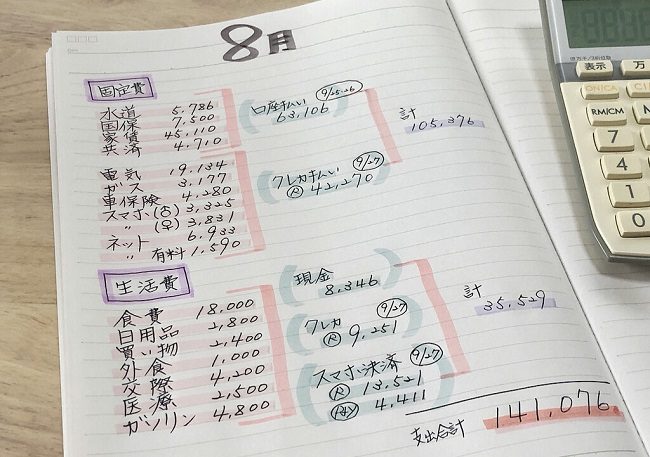 8月
固定費
水道 5,786
国保 7,500
家賃 45,110
共済 4,710
口座払い 9/25・26
63,106
計
105,376
電気 19,134
ガス 3,177
車保険 4,280
スマホ(♂) 3,325
〃 (♀) 3,831
ネット 6,933
〃 有料 1,590
クレカ払い 9/27
Ⓡ 42,270
生活費
食費 18,000
日用品 2,800
買い物 2,400
外食 1,000
交際 4,200
医療 2,500
ガソリン 4,800
現金
8,346
クレカ 9/27
Ⓡ 9,251
スマホ決済 9/27
Ⓡ 13,521
4,411
計
35,529
支出合計 141,076
表示
万
RM/CM
7
4
1
0